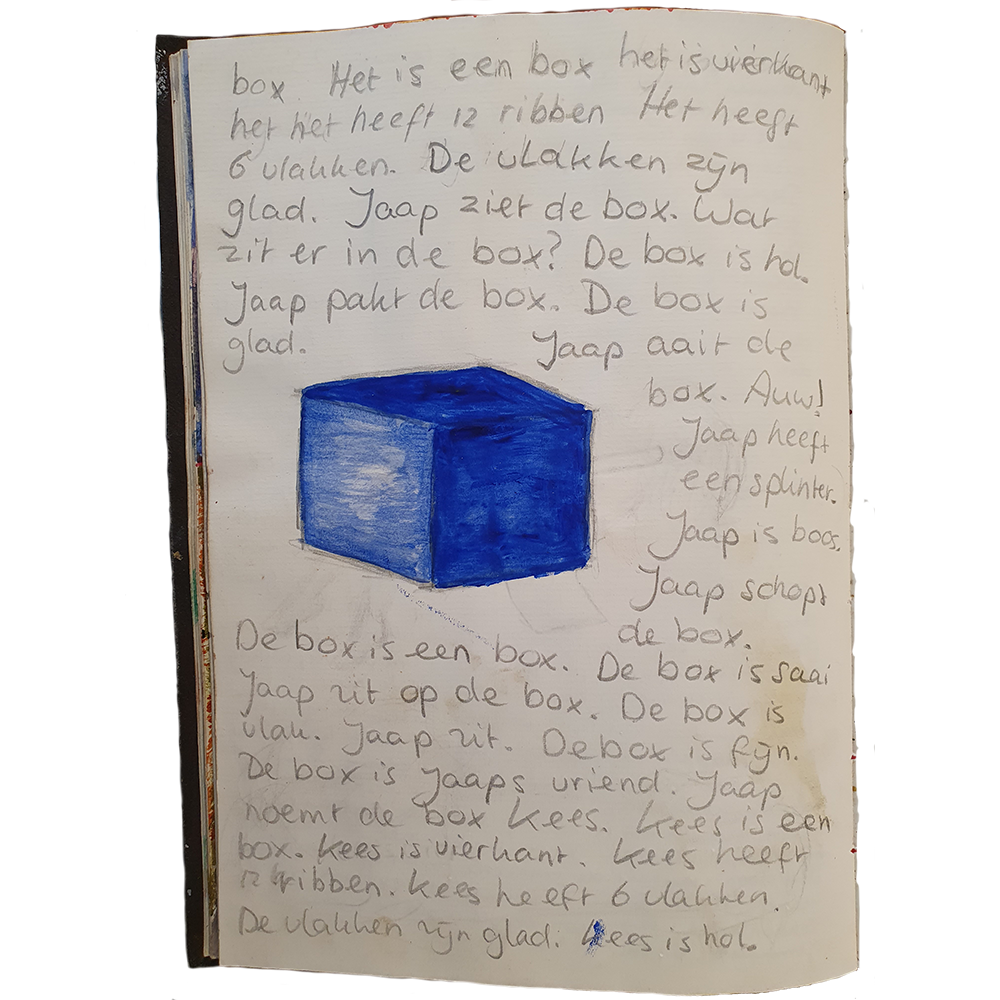 box. Het is een box het is vierkant
het het heeft 12 ribben Het heeft
6 vlakken. De vlakken zijn
glad. Jaap ziet de box. Wat
zit er in de box? De box is hol.
Jaap pakt de box. De box is
glad. Jaap aait de
box. Auw!
Jaap heeft
een splinter.
Jaap is boos.
Jaap schopt
de box.
De box is een box. De box is saai
Jaap zit op de box. De box is
vlak. Jaap zit. De box is fijn.
De box is Jaaps vriend. Jaap
noemt de box Kees. Kees is een
box. Kees is vierkant. Kees heeft
12 ribben. Kees heeft 6 vlakken.
De vlakken zijn glad. Kees is hol.